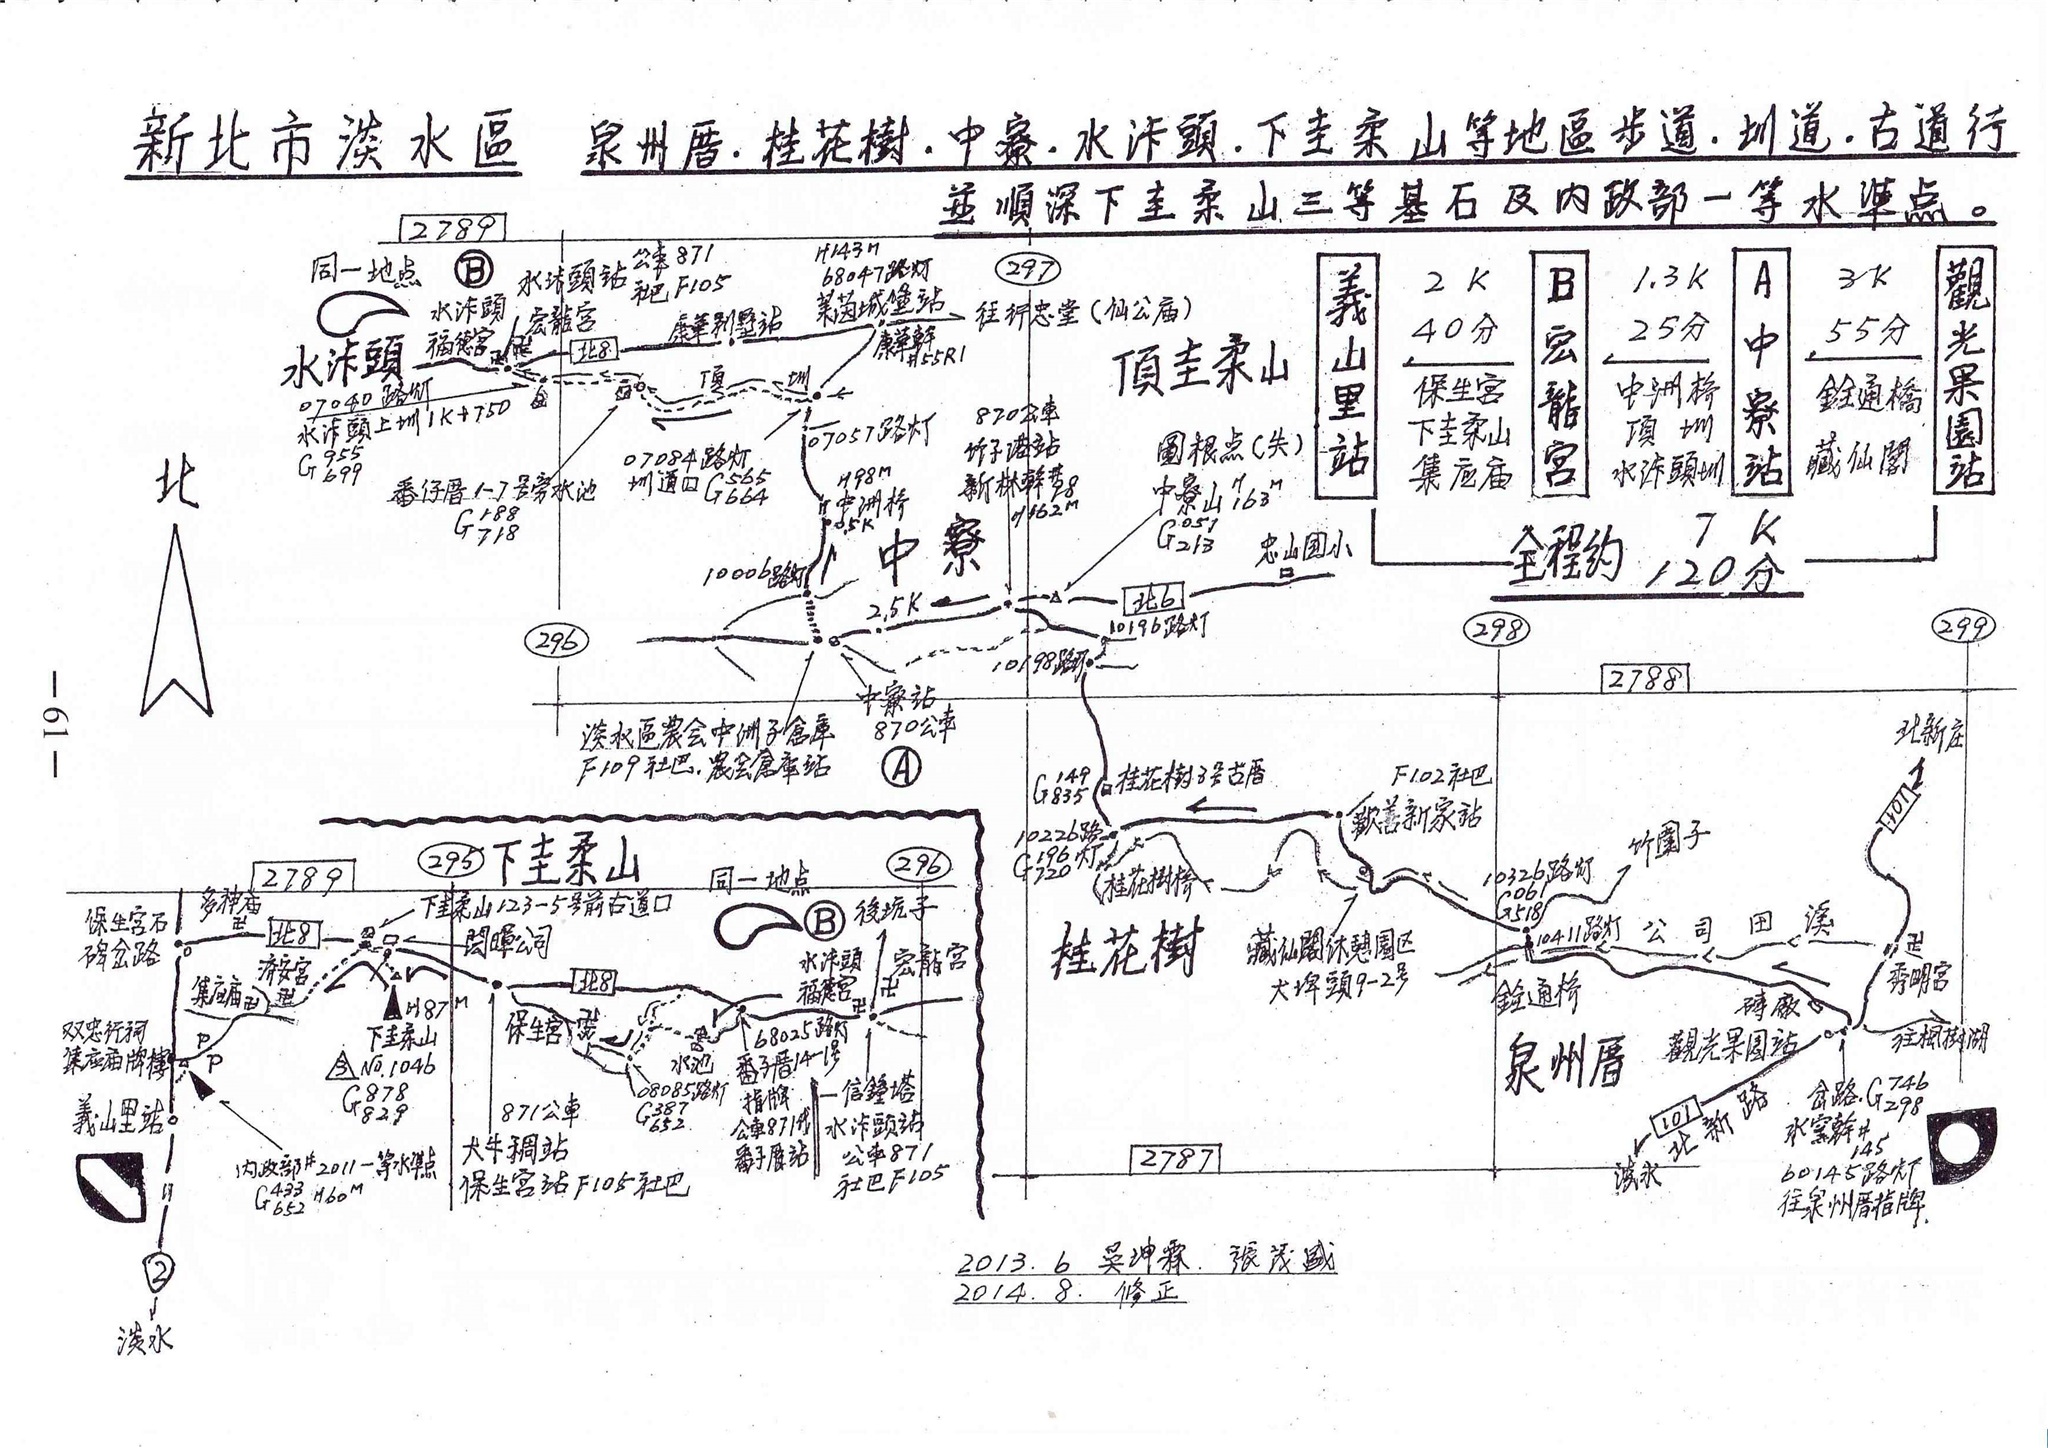 新北市淡水區 泉州厝.桂花樹.中寮.水汴頭.下圭柔山等地區步道.圳道.古道行
並順深下圭柔山三等基石及內政部一等水準点。
2789
297
同一地点
B
水汴頭站
公車871
社巴F105
H143M
68047路灯
萊茵城堡站
往行忠堂(仙公庙)
水汴頭
福德宮
宏龍宮
北8
康華別墅站
康華幹
#55R1
水汴頭
頂圳
頂圭柔山
07040路灯
水汴頭上圳1K+750
G955
699
番仔厝1-7号旁水池
G188
718
07084路灯
圳道口
G565
664
07057路灯
H98M
中洲橋
0.5K
820公車
竹子湖站
H162M
圖根点(失)
中寮山H163M
G051
213
忠山国小
北
中寮
10006路灯
2.5K
北6
10196路灯
10198路灯
296
298
299
2788
中寮站
870公車
A
淡水區農会中洲子倉庫
F109社巴.農会倉庫站
義山里站
2K
40分
保生宮
下圭柔山
集应庙
B宏龍宮
1.3K
25分
中洲橋
頂圳
水汴頭圳
A中寮站
3K
55分
銓通橋
藏仙閣
觀光果園站
全程約 7K
120分
-61-
北新庄
101
G149
835
桂花樹3号古厝
F102社巴
歡善新家站
10226路灯
G196
720
(桂花樹橋)
桂花樹
竹圍子
10326路灯
G061
518
10411路灯
公司田溪
藏仙閣休憩園区
大埤頭9-2号
銓通桥
秀明宮
磚廠
觀光果园站
往楓樹湖
泉州厝
岔路.G746
298
水窯幹#
145
60145路灯
往泉州厝指牌.
101
北新路
淡水
2787
2789
295
下圭柔山
296
同一地点
B
後坑子
保生宮石
碑岔路
多神庙
北8
下圭柔山123-5号前古道口
閎暉公司
済安宮
集应庙
H87M
下圭柔山
No.1046
G878
829
双忠行祠
集应庙牌樓
P
P
義山里站
內政部#2011一等水準点
G433
652
H60M
2
淡水
保生宮
北8
水池
08085路灯
G387
652
871公車
大牛稠站
保生宮站F105社巴
水汴頭
福德宮
宏龍宮
68025路灯
番子厝14-1号
指牌
公車871
番子厝站
信鐘塔
水汴頭站
公車871
社巴F105
2013.6 吳坤霖.張茂盛
2014.8. 修正